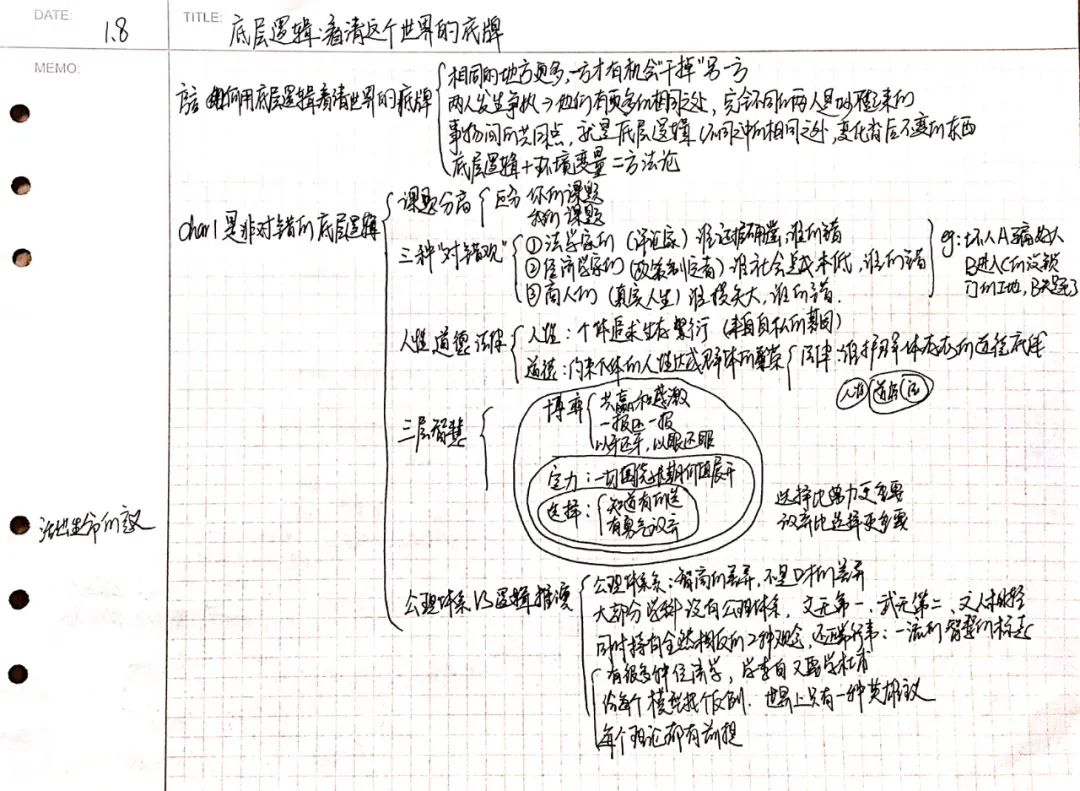 DATE: 1.8
TITLE: 底层逻辑:看清这个世界的底牌
MEMO:
序言 如何用底层逻辑看清世界的底牌
相同的地方更多,一方才有机会"干掉"另一方
两人发生争执→他们有更多的相同之处,完全不同的两人是吵不起来的
事物间的共同点,就是底层逻辑(不同之中的相同之处,变化背后不变的东西
底层逻辑+环境变量=方法论
char1 是非对错的底层逻辑
课题分离
区分 你的课题
我的课题
三种"对错观"
①法学家的 谁证据确凿,谁的错
②经济学家的(政策制定者)谁社会总成本低,谁的错
③商人的(真实人生)谁损失大,谁的错.
eg:坏人A骗好人
B进入C的没锁
门的工地,B失足死了
人性 道德 法律
人性:个体追求生存繁衍(来自自私的基因)
道德:约束个体的人性达成群体的繁荣
法律:维护群体存在的道德底座
人性 道德 法
三层智慧
博弈
共赢和感激
一报还一报
以牙还牙,以眼还眼
定力:一切围绕长期价值展开
选择:
知道有的选
有勇气放弃
选择比努力更重要
放弃比选择更重要
活出生命的意义
公理体系VS逻辑推演
公理体系:智商的差异,不是口才的差异
大部分学科没有公理体系,文无第一,武无第二,文人相轻
同时持有全然相反的2种观念,还能行事:一流的智慧的标志
有很多种位,学李白又要学杜甫
给每个模型找个反例.世界上只有一种英雄主义
每个理论都有前提